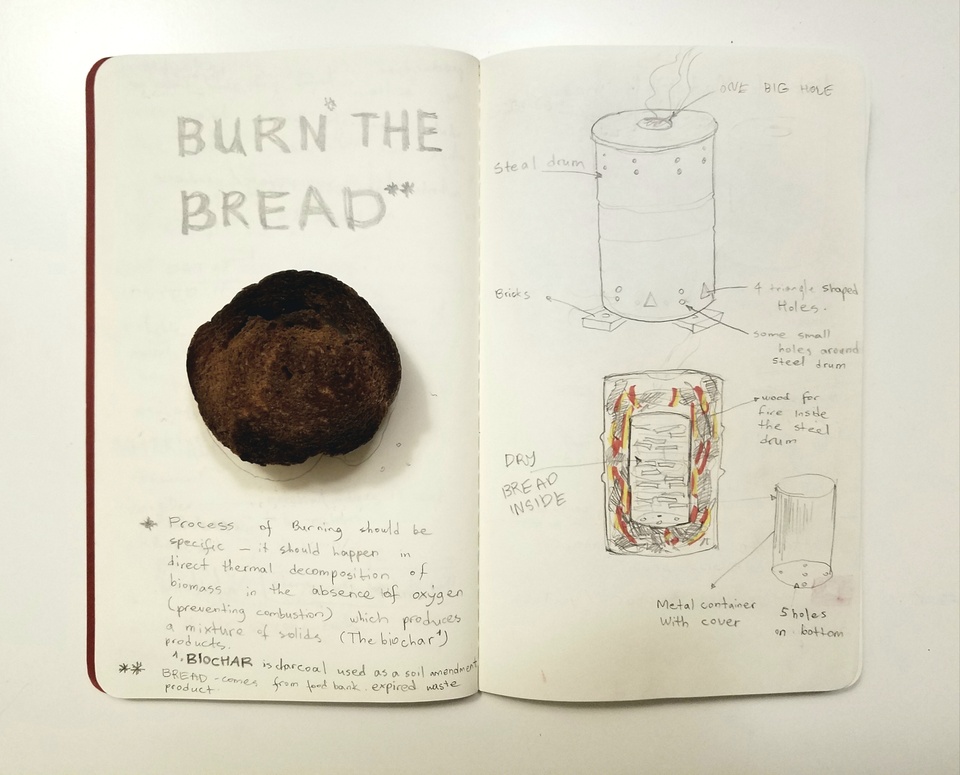 BURN* THE
BREAD**
* Process of Burning should be
specific – it should happen in
direct thermal decomposition of
biomass in the absence of oxygen
(preventing combustion) which produces
a mixture of solids (The biochar¹)
products.
1. BIOCHAR is charcoal used as a soil amendment
** BREAD - comes from food bank. expired waste
product.
ONE BIG HOLE
Steal drum
Bricks
4 triangle shaped
Holes.
some small
holes around
steel drum
wood for
fire inside
the steel
drum
DRY
BREAD
INSIDE
Metal container
With cover
5 holes
on bottom